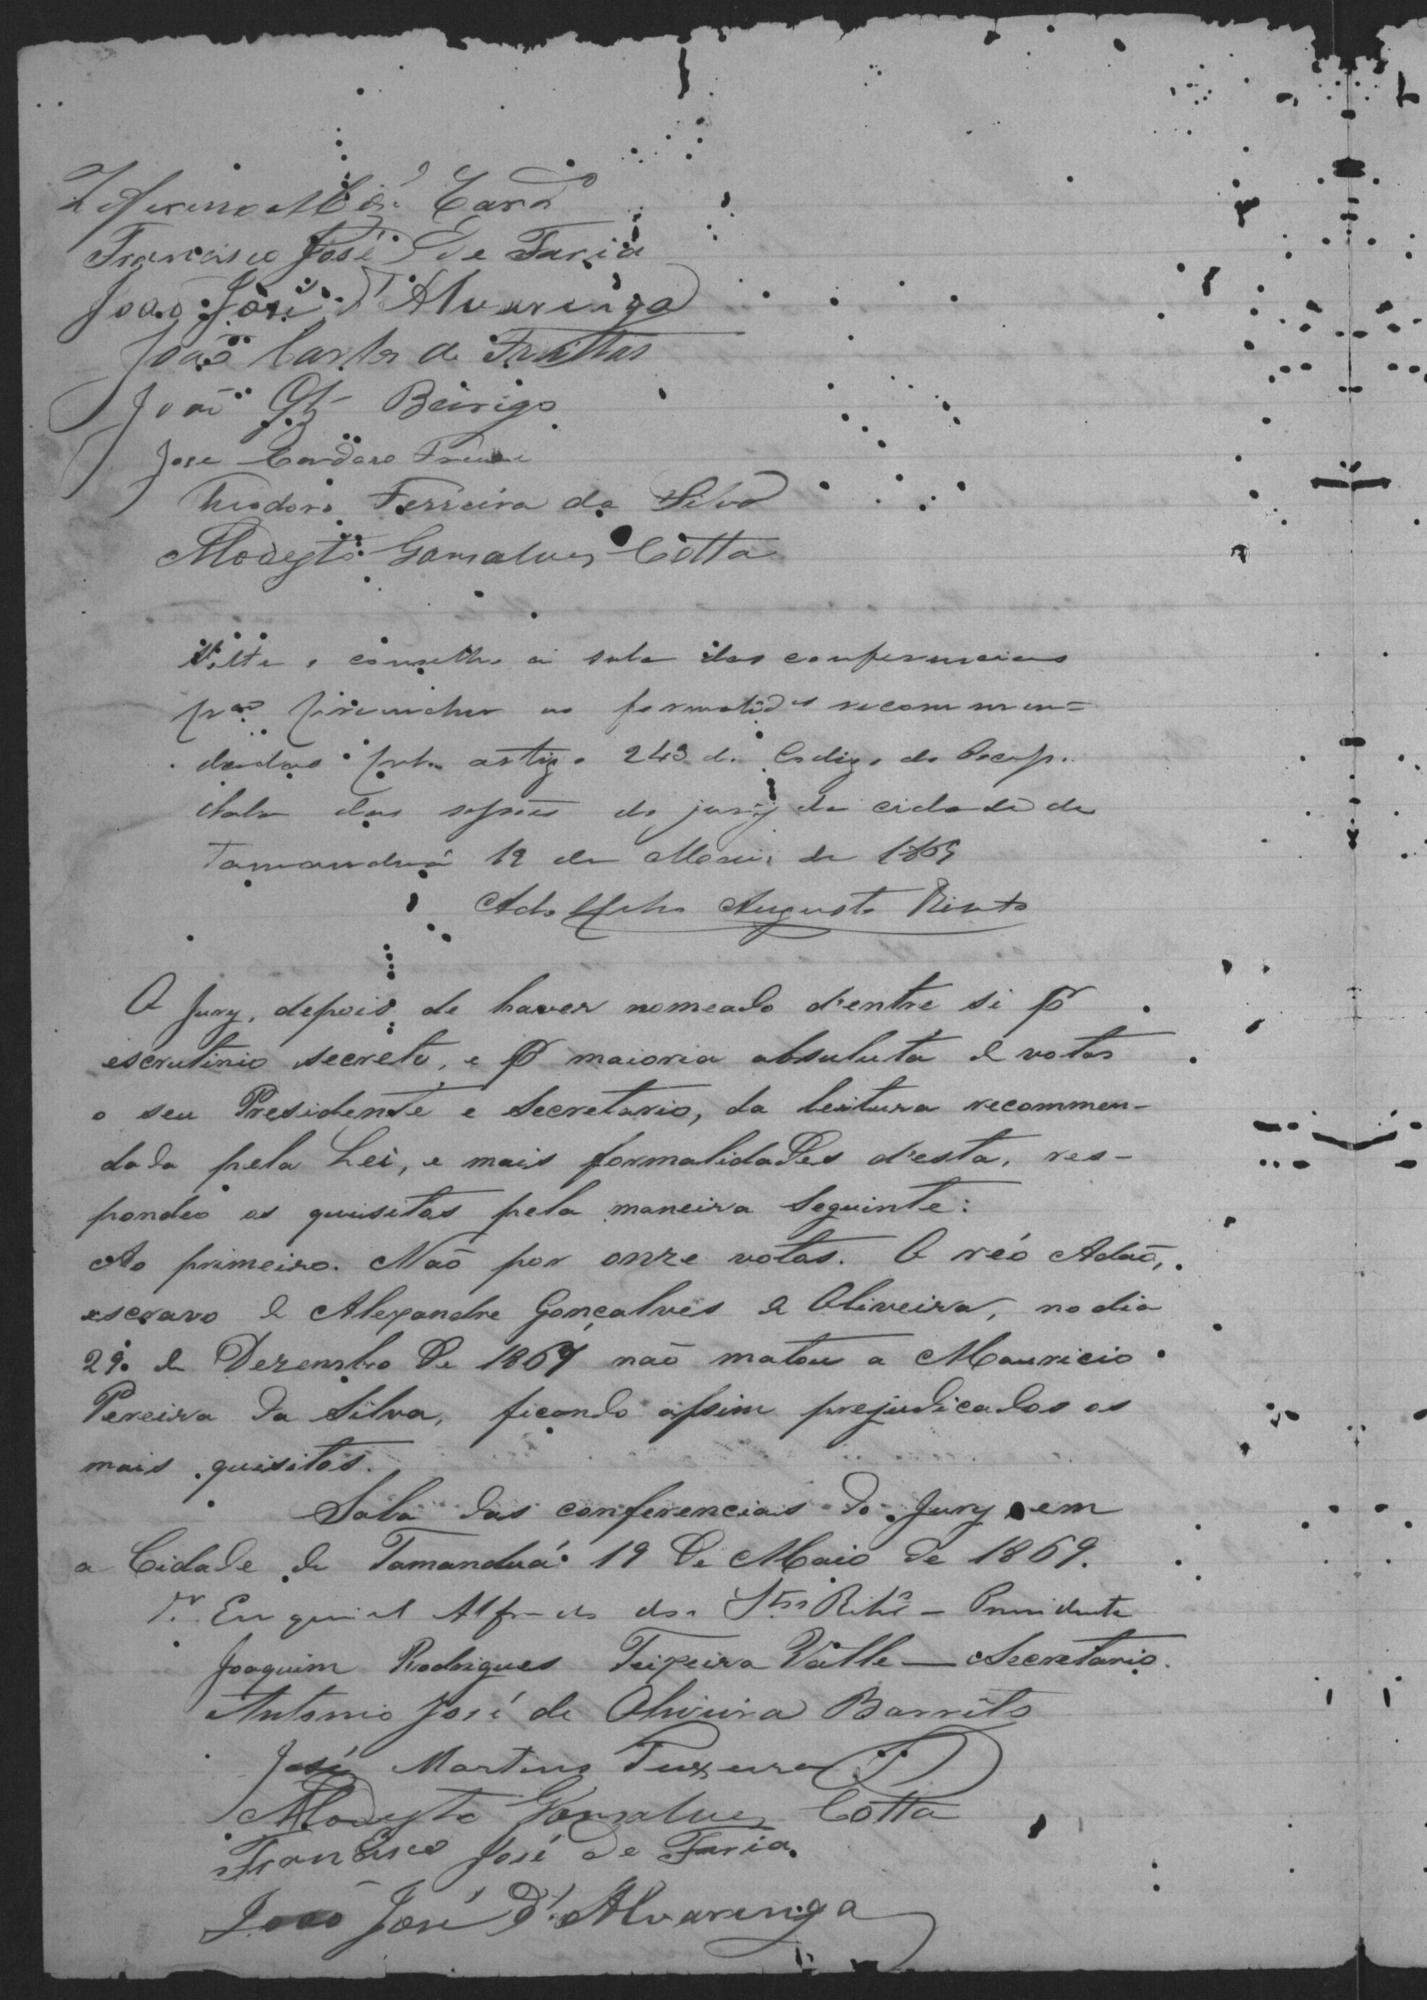 Francisco José de Faria
João José d'Alvarenga
João de Freittas
João Glz Beirigo
Jose Cardoso
Theodoro Ferreira da Silva
Modesto Gonsalves Cotta
Volte o conselho á sala das conferencias
pra preencher as formalidades recommen=
dadas pelo artigo 243 do Codigo do Procesº
Sala das sessões do jury da cidade de
Tamanduá 19 de Maio de 1869
Adolpho Augusto Pinto
O Jury, depois de haver nomeado d'entre si pr
escrutinio secreto, e pr maioria absoluta de votos
o seu Presidente e Secretario, da leitura recommen-
dada pela Lei, e mais formalidades d'esta, res-
pondeo os quisitos pela maneira seguinte:
Ao primeiro. Não por onze votos. O réo Adão,
escravo de Alexandre Gonçalves de Oliveira, no dia
29 de Dezembro de 1867 não matou a Mauricio
Pereira da Silva, ficando assim prejudicados os
mais quisitos.
Sala das conferencias do Jury em
a Cidade de Tamanduá 19 de Maio de 1869.
Presidente
Joaquim Rodrigues Teixeira Valle — Secretario.
Antonio José de Oliveira Barreto
José Martins Teixeira
Modesto Gonsalves Cotta
Francisco José de Faria
João José d'Alvarenga